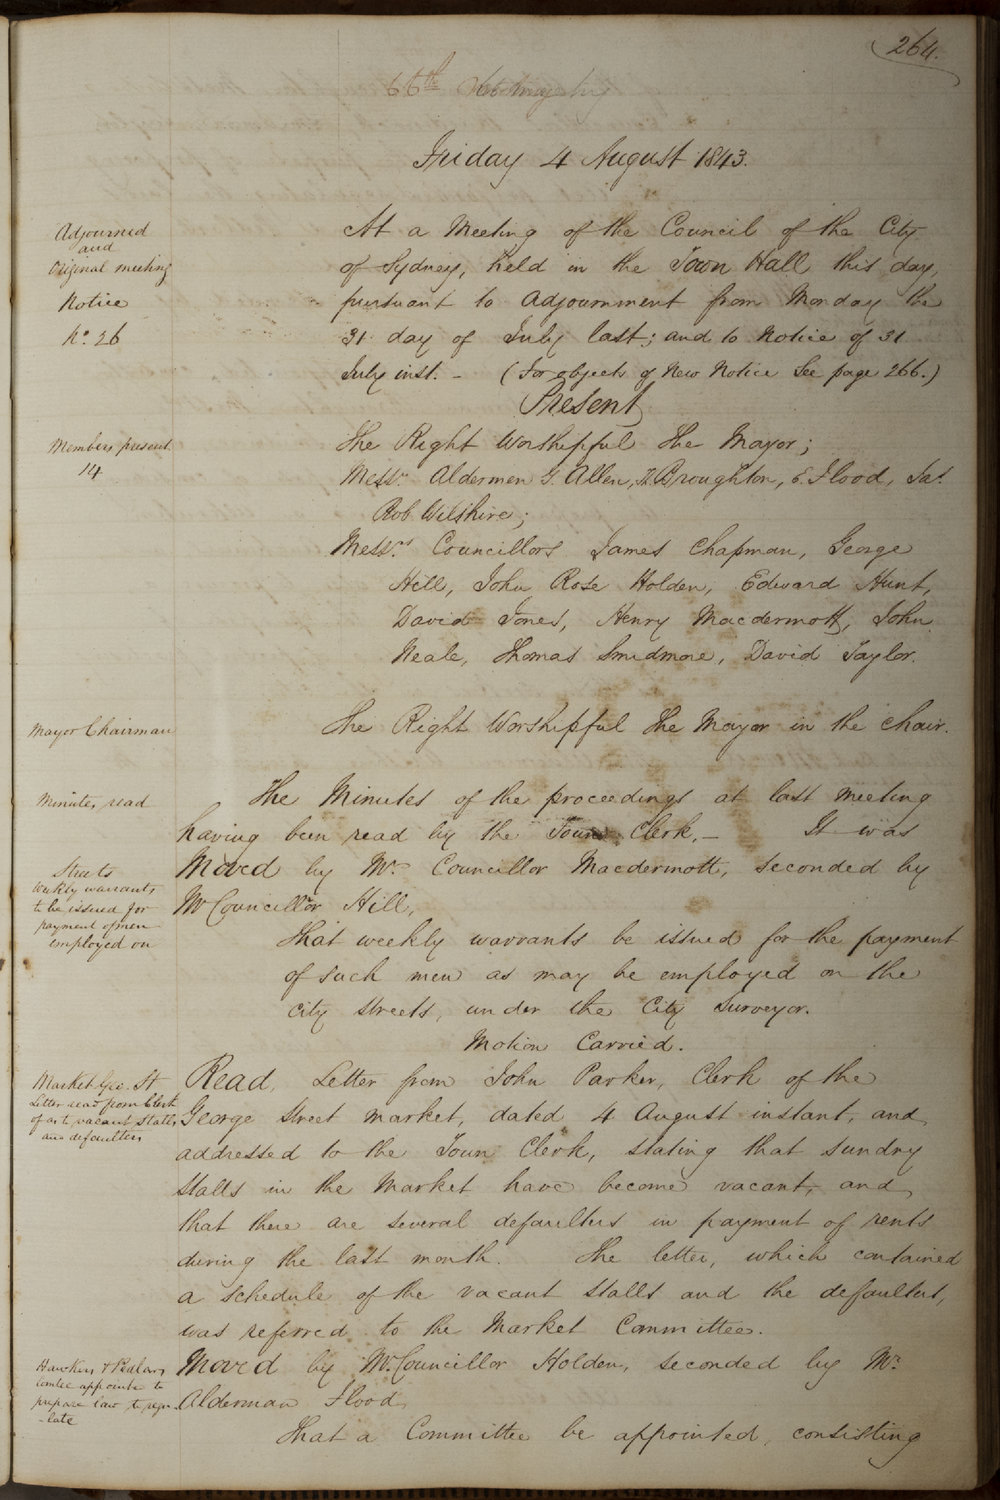 264.
66th
Friday 4 August 1843.
Adjourned
and
Original meeting
Notice
No. 26
At a Meeting of the Council of the City
of Sydney, held in the Town Hall this day,
pursuant to adjournment from Monday the
31 day of July last; and to Notice of 31
July inst. - (For objects of New Notice See page 266.)
Present
Members present
14
The Right Worshipful The Mayor;
Messrs. Aldermen G. Allen, T. Broughton, E. Flood, Jas.
Rob. Wilshire;
Messrs. Councillors James Chapman, George
Hill, John Rose Holden, Edward Hunt,
David Jones, Henry Macdermott, John
Neale, Thomas Smidmore, David Taylor.
Mayor Chairman
The Right Worshipful The Mayor in the chair.
Minutes read
The Minutes of the proceedings at last meeting
having been read by the Town Clerk, - It was
Streets
Weekly warrants
to be issued for
payment of men
employed on
Moved by Mr. Councillor Macdermott, seconded by
Mr Councillor Hill,
That weekly warrants be issued for the payment
of such men as may be employed on the
city streets, under the City Surveyor.
Motion Carried.
Market Geo. St
Letter read from Clerk
of as to vacant Stalls
and defaulters
Read, Letter from John Parker, Clerk of the
George Street Market, dated 4 August instant, and
addressed to the Town Clerk, stating that sundry
Stalls in the Market have become vacant, and
that there are several defaulters in payment of rents
during the last month. The letter, which contained
a schedule of the vacant stalls and the defaulters,
was referred to the Market Committee.
Hawkers & Pedlars
Comtee appointd to
prepare law to regu-
-late
Moved by Mr. Councillor Holden, seconded by Mr.
Alderman Flood,
That a Committee be appointed, consisting